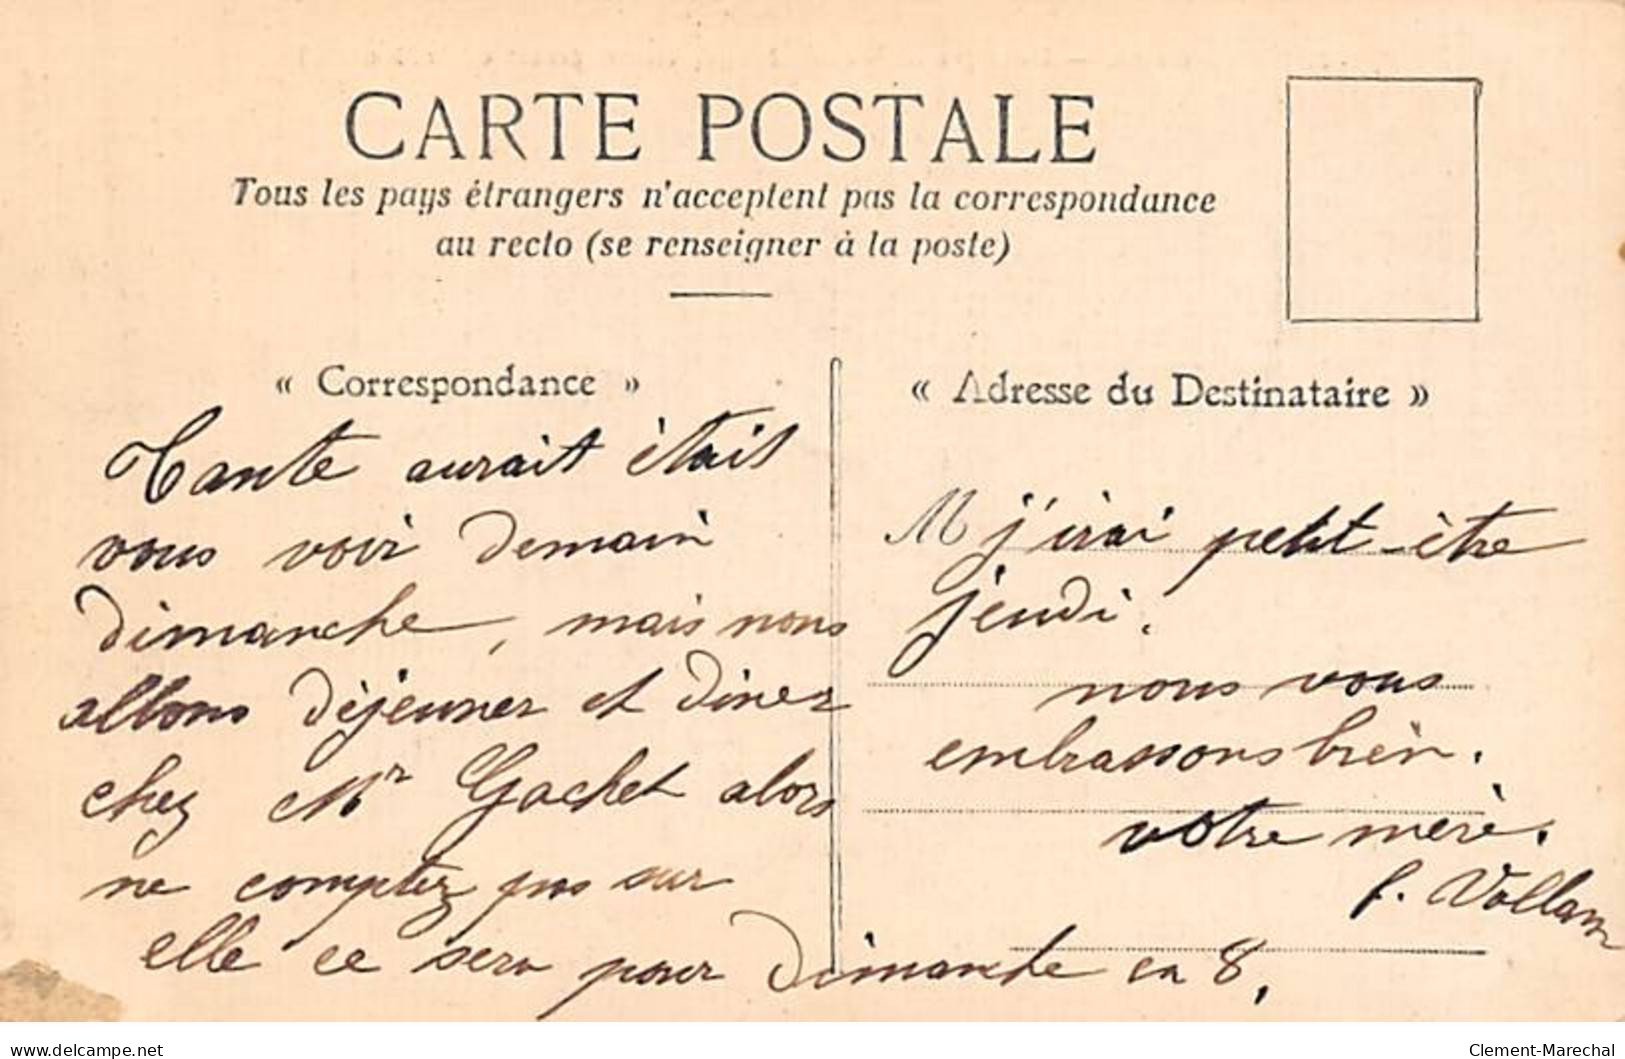 CARTE POSTALE
Tous les pays étrangers n'acceptent pas la correspondance
au recto (se renseigner à la poste)
« Correspondance »
Tante aurait était
vous voir demain
dimanche, mais nous
allons déjeuner et diner
chez Mr Gachet alors
ne comptez pas sur
elle ce sera pour dimanche en 8.
« Adresse du Destinataire »
M j'irai petit-être
jeudi.
nous vous
embrassons bien.
votre mère.
f.
delcampe.net
Clement-Marechal